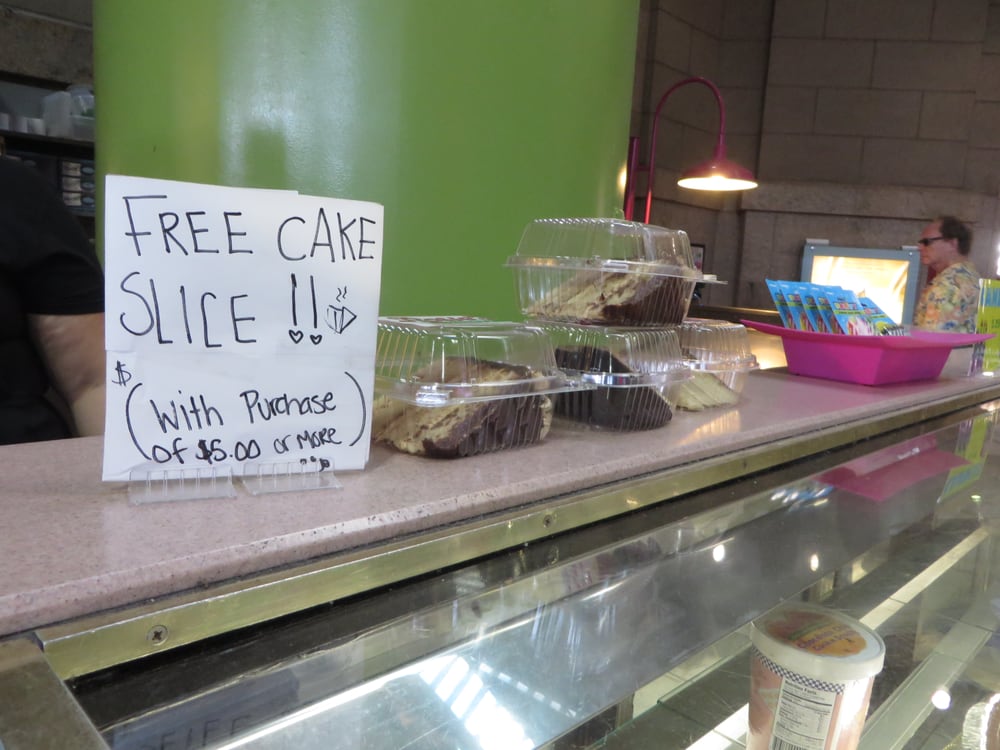 FREE CAKE
SLICE !!
$
(With Purchase
of $5.00 or more)